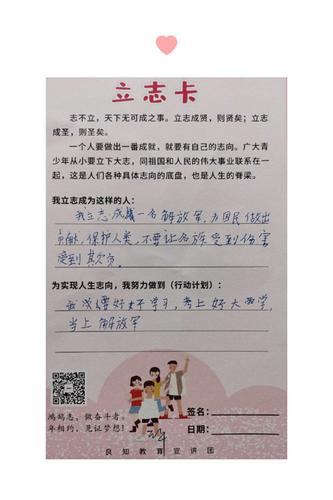 立志卡
志不立，天下无可成之事。立志成贤，则贤矣；立志
成圣，则圣矣。
一个人要做出一番成就，就要有自己的志向。广大青
少年从小要立下大志，同祖国和人民的伟大事业联系在一
起，这是人们各种具体志向的底盘，也是人生的脊梁。
我立志成为这样的人：
我立志成 一名解放军，为国民做出
贡献，保护人类，不要让名族受到伤害
受到其欠负。
为实现人生志向，我努力做到（行动计划）：
我 要好好学习，考上好大学，
当上解放军
鸿鹄志，做奋斗者。
年相约，见证梦想！
签名：
日期：
良知教育宣讲团